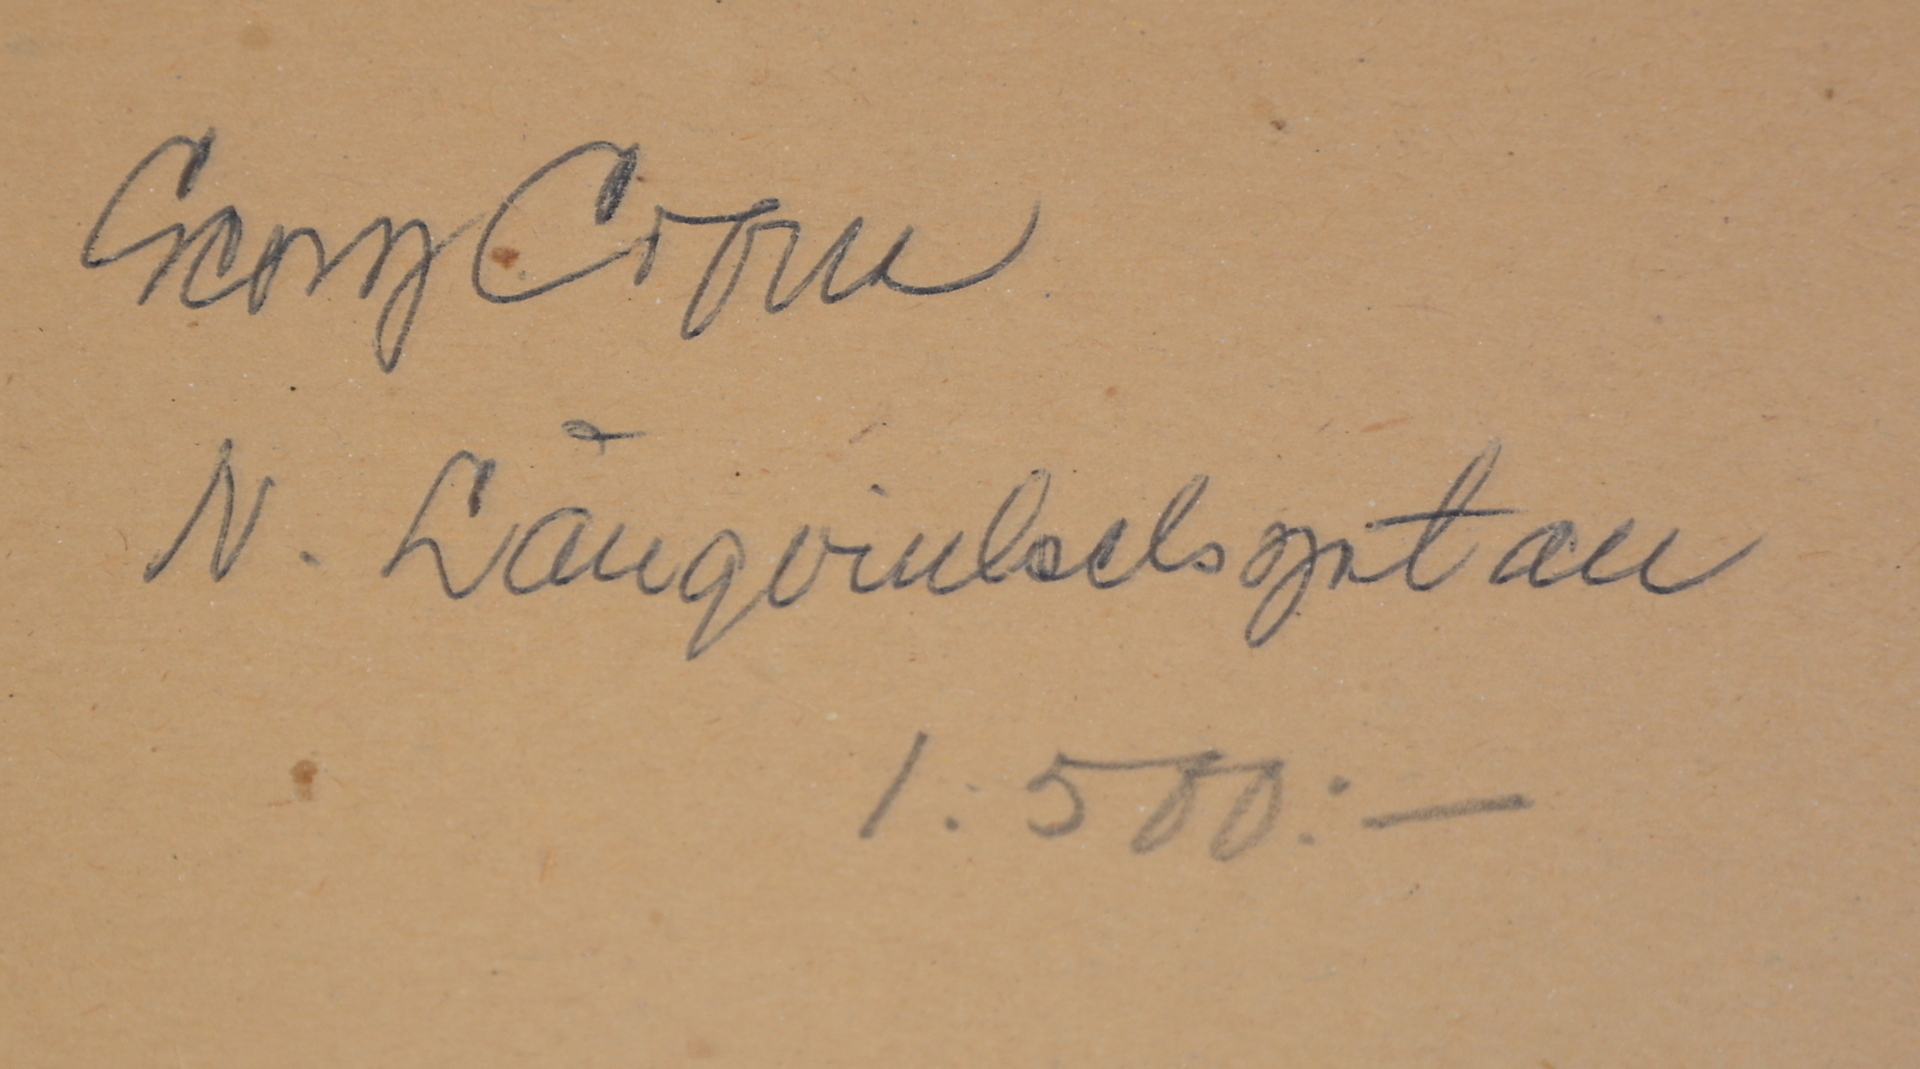 Georg
N. Långvinkelsgatan
1:500:—